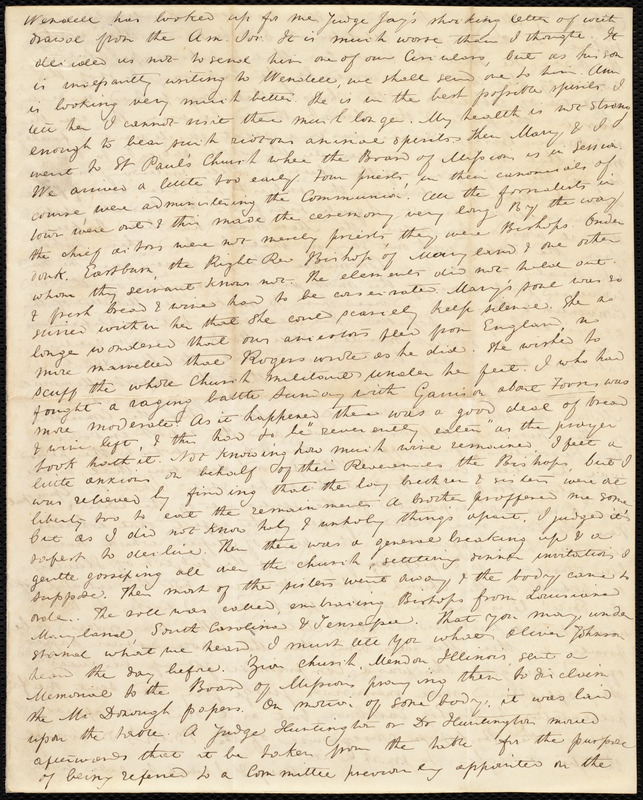 Wendell has looked up for me Judge Jay's shocking letter of with
drawal from the Am. Soc. It is much worse than I thought. It
decided us not to send him one of our Circulars, but as his son
is incessantly writing to Wendell, we shall send one to him. Ann
is looking very much better. She is in the best possible spirits. I
tell her I cannot visit thee much longer. My health is not strong
enough to bear such riotous animal spirits. Then Mary & I
went to St Paul's Church where the Board of Missions is in session.
We arrived a little too early. Four priests, in their canonicals of
course were administering the Communion. All the formalists in
town were out & this made the ceremony very long. By the way,
the chief actors were not merely priests, they were Bishops. Onder
donk, Eastburn, the Right Rev Bishop of Maryland & one other
whom thy servant knows not. The elements did not hold out.
& fresh bread & wine had to be consecrated. Mary's soul was so
stirred within her that she could scarcely keep silence. She no
longer wondered that our ancestors fled from England, no
more marvelled that Rogers wrote as he did. She wished to
scuff the whole Church militant under her feet. I who had
fought a raging battle Sunday with Garrison about Forms was
more moderate. As it happened there was a good deal of bread
& wine left, & this had to be "reverently eaten" as the prayer
book hath it. Not knowing how much wine remained I felt a
little anxious on behalf of their Reverences the Bishops, but I
was relieved by finding that the lay brethren & sisters were at
liberty too to eat the remainments. A brother proffered me some
but as I did not know holy & unholy things apart, I judged it
safest to decline. Then there was a general breaking up & a
gentle gossiping all over the church, settling dinner invitations I
suppose. Then most of the sisters went away & the body came to
order. The roll was called, embracing Bishops from Louisiana
Maryland, South Carolina & Tennessee. That you may under
stand what we heard I must tell you what Oliver Johnson
heard the day before. Zion Church, Mendon Illinois, sent a
Memorial to the Board of Missions praying them to disclaim
the Mc Donough papers. On motion of some body, it was laid
upon the table. A Judge Huntington or Dr Huntington moved
afterwards that it be taken from the table for the purpose
of being referred to a Committee previously appointed on the